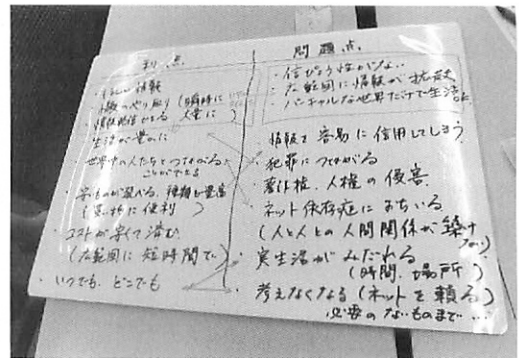 利点
情報
情報のやり取り(瞬時に
大量に)
情報発信できる
生活が豊かに
・世界中の人たちとつながる
ことができる
・安いものが選べる、種類も豊富
(買い物に便利)
・コストが安くて済む
(広範囲に短時間で)
・いつでも、どこでも
問題点
・信ぴょう性がない
・広範囲に情報が拡散
・バーチャルな世界だけで生活
情報を容易に信用してしまう
・犯罪につながる
・著作権、人権の侵害
・ネット依存症におちいる
(人と人との人間関係が築け
ない)
・実生活がみだれる
(時間、場所)
・考えなくなる(ネットを頼る)
必要のないものまで…